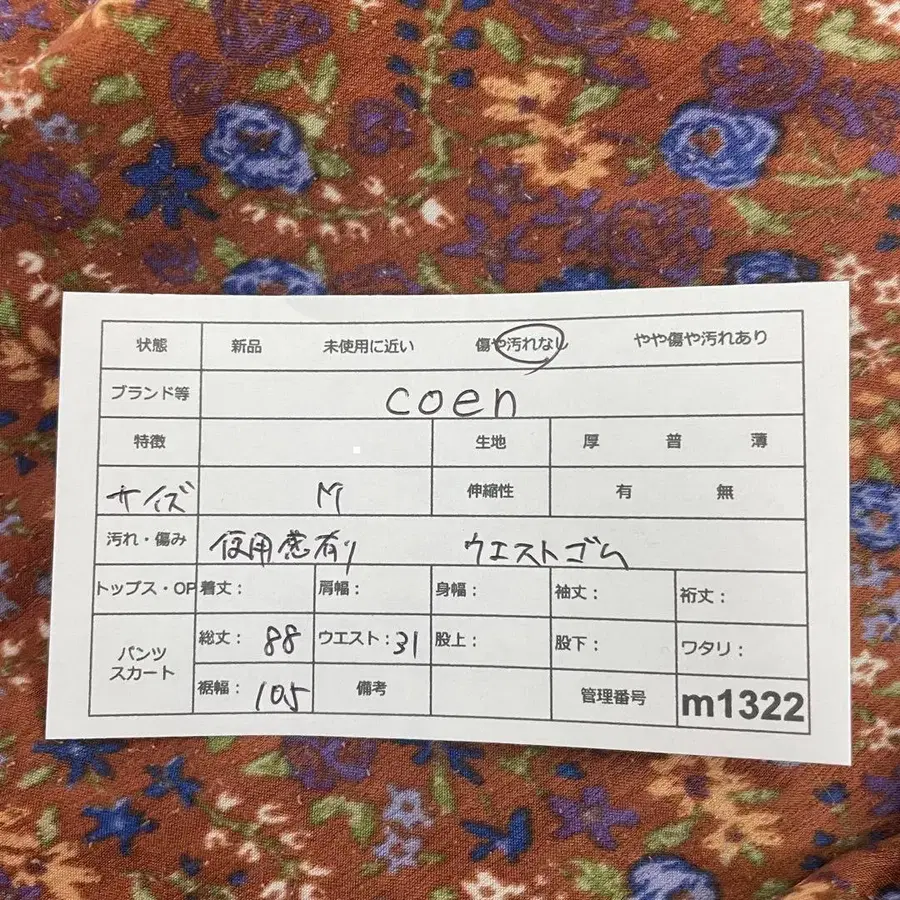 状態 新品 未使用に近い 傷や汚れなし やや傷や汚れあり
ブランド等 coen
特徴 生地 厚 普 薄
サイズ M 伸縮性 有 無
汚れ・傷み 使用感有り ウエストゴム
トップス・OP 着丈： 肩幅： 身幅： 袖丈： 裄丈：
パンツ スカート 総丈：88 ウエスト：31 股上： 股下： ワタリ：
裾幅：105 備考 管理番号 m1322